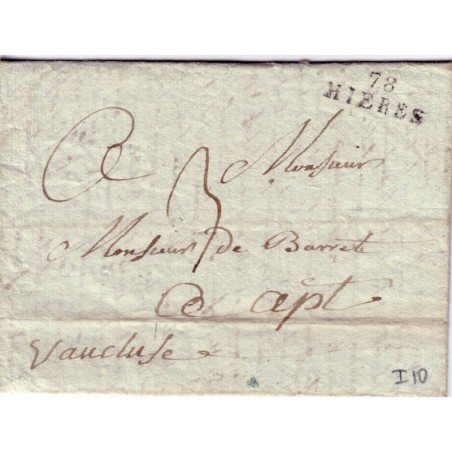 78
HIERES
A Monsieur
3
Monsieur de Barrete
A apt
Vaucluse
I 10